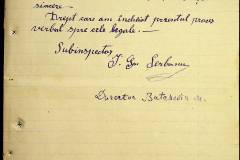 sincere.-
- Drept care am încheiat prezentul proces
verbal spre cele legale.-
Subinspector
I. Gr. Serbanescu
Director